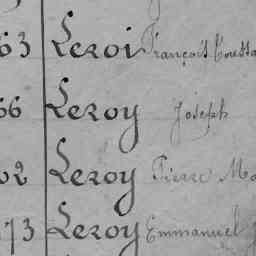 63 Leroi François Toussa
66 Leroy Joseph
02 Leroy Pierre Ma
73 Leroy Emmanuel